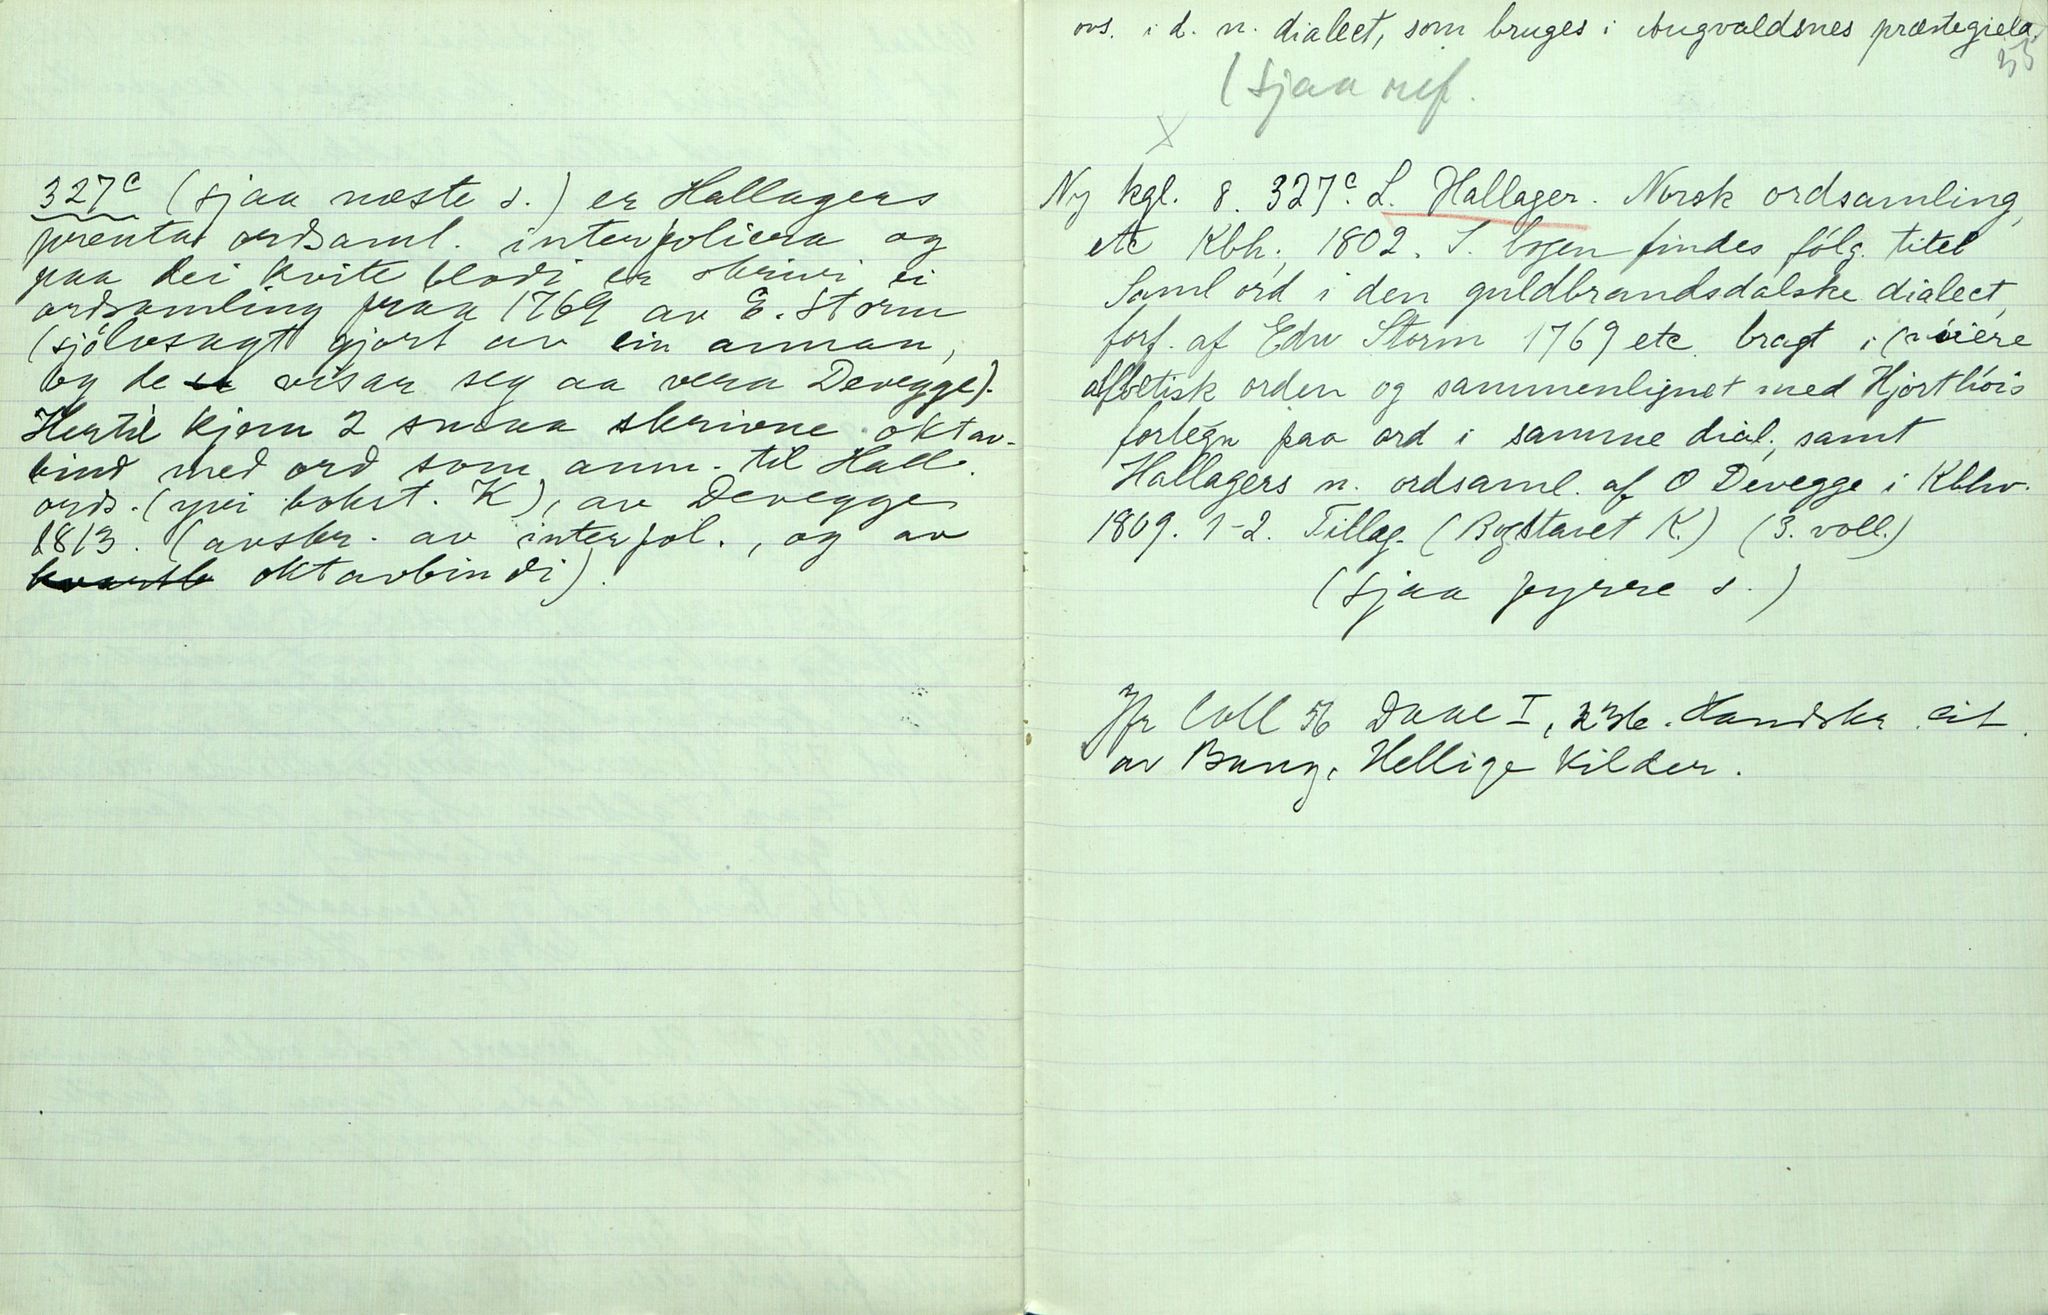 327c (sjaa næste s.) er Hallagers
prenta ordsaml. interpoliera og
paa dei kvite bladi er skrivi ei
ordsamling fraa 1769 av E. Storm
(sjølvsagt gjort av ein annan,
og de visar seg aa vera Devegge).
Hertil kjem 2 smaa skrivne oktav-
bind med ord som anm. til Hall.
ords. (yvi bokst. K), av Devegge
1813. (avskr. av interpol., og av
oktavbindi).
ovs. i d. n. dialect, som bruges i Augvaldsnes præstegield.
(sjaa
X
Ny kgl. 8. 327c. L. Hallager. Norsk ordsamling
etc Kbh. 1802. I bogen findes følg. titel
Saml ord i den guldbrandsdalske dialect,
forf. af Edv Storm 1769 etc bragt i (nøiere
alfbetisk orden og sammenlignet med Hjorthøis
fortegn paa ord i samme dial., samt
Hallagers n. ordsaml. af O Devegge i Kbhv.
1809. 1-2. Tillæg. (Bogstavet K.) (3. voll.)
(sjaa fyrre s.)
Jfr Coll 56 Daae I, 236. Handskr. cit.
av Bang, Hellige Kilder.